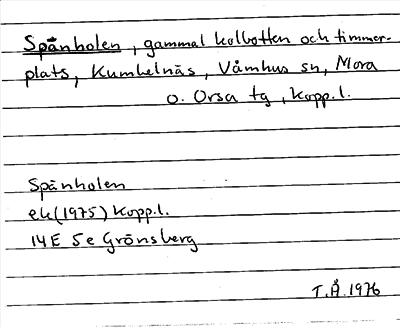 Spånholen, gammal kolbotten och timmer-
plats, Kumbelnäs, Våmhus sn, Mora
o. Orsa tg, Kopp.l.
Spånholen
ek (1975) Kopp.l.
14E 5e Grönsberg
T.Å. 1976